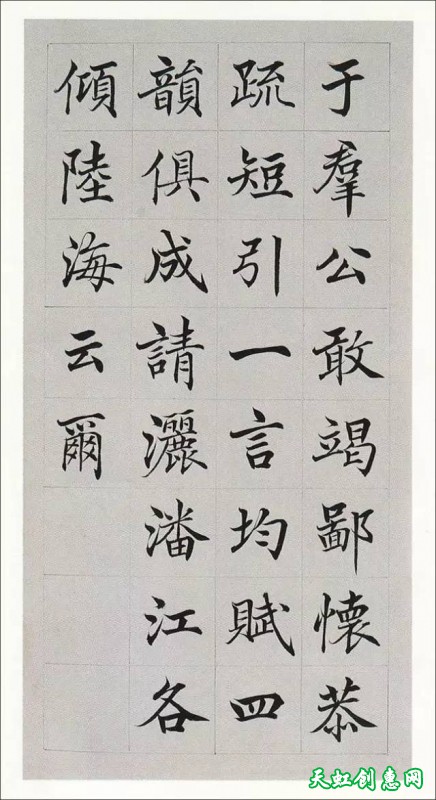 于羣公敢竭鄙懷恭
疏短引一言均賦四
韻俱成請灑潘江各
傾陸海云爾
天虹创惠网